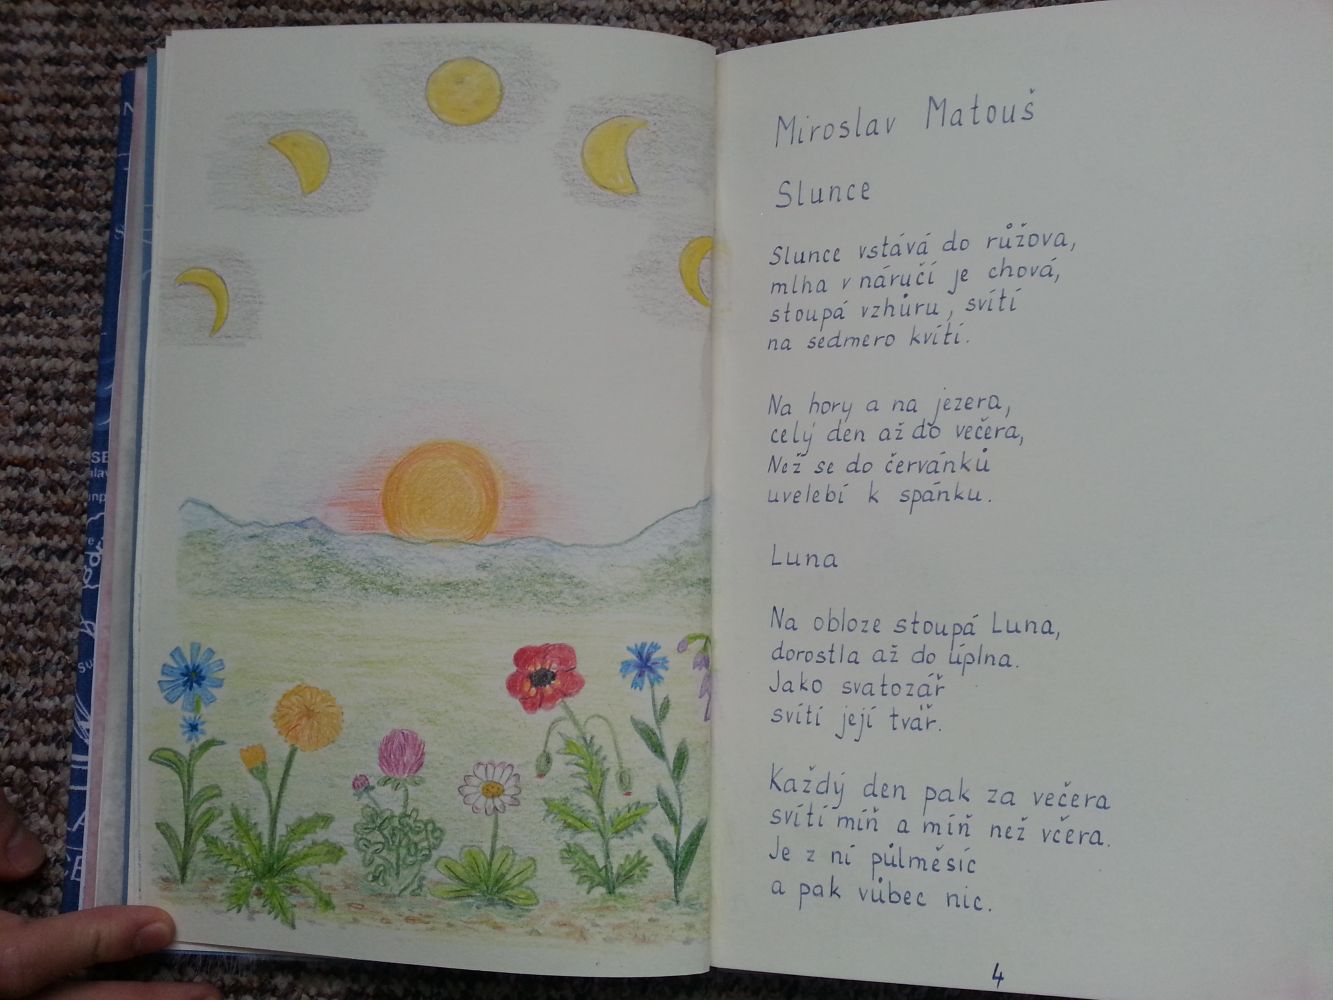 Miroslav Matouš
Slunce
Slunce vstává do růžova,
mlha v náručí je chová,
stoupá vzhůru, svítí
na sedmero kvítí.
Na hory a na jezera,
celý den až do večera,
Než se do červánků
uvelebí k spánku.
Luna
Na obloze stoupá Luna,
dorostla až do úplna.
Jako svatozář
svítí její tvář.
Každý den pak za večera
svítí míň a míň než včera.
Je z ní půlměsíc
a pak vůbec nic.
4